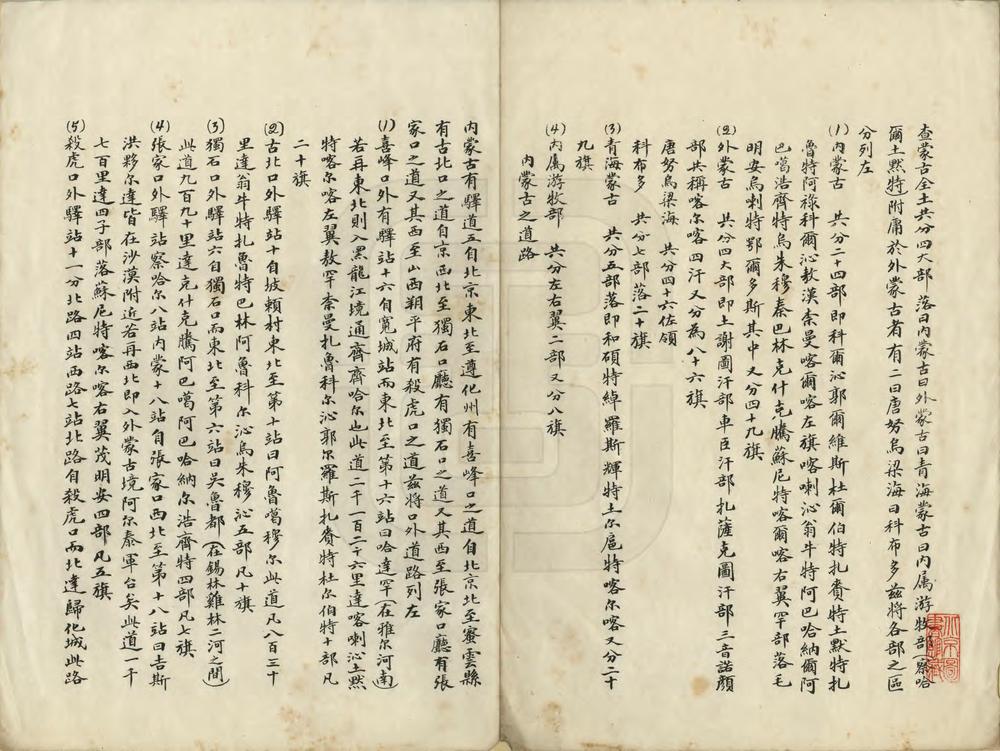 查蒙古全土共分四大部落曰內蒙古曰外蒙古曰青海蒙古曰內属游牧部(察哈
爾土黙特)附庸於外蒙古者有二曰唐努烏梁海曰科布多茲將各部之區
分列左
(1)內蒙古　共分二十四部即科爾沁郭爾維斯杜爾伯特扎賚特土默特扎
魯特阿祿科爾沁敖漢柰曼喀爾喀左旗喀喇沁翁牛特阿巴哈納爾阿
巴噶浩齊特烏朱穆秦巴林克什克騰蘇尼特喀爾喀右翼罕部落毛
明安烏喇特鄂爾多斯其中又分四十九旗
(2)外蒙古　共分四大部即土謝圖汗部車臣汗部扎薩克圖汗部三音諾顏
部共稱喀尔喀四汗又分為八十六旗
唐努烏梁海　共分四十六佐領
科布多　共分七部落二十旗
(3)青海蒙古　共分五部落即和碩特綽羅斯輝特土尔扈特喀尔喀又分二十
九旗
(4)內属游牧部　共分左右翼二部又分八旗
內蒙古之道路
內蒙古有驛道五自北京東北至遵化州有喜峰口之道自北京北至蜜雲縣
有古北口之道自京西北至獨石口廳有獨石口之道又其西至張家口廳有張
家口之道又其西至山西朔平府有殺虎口之道茲將口外道路列左
(1)喜峰口外有驛站十六自寬城站而東北至第十六站曰哈達罕(在雅尔河南)
若再東北則入黑龍江境通齊齊哈尔也此道二千一百二十六里達喀喇沁土黙
特喀尔喀左翼敖罕柰曼扎魯科尔沁郭尔羅斯扎賚特杜尔伯特十部凡
二十旗
(2)古北口外驛站十自坡賴村東北至第十站曰阿魯噶穆尔此道凡八百三十
里達翁牛特扎魯特巴林阿魯科尔沁烏朱穆沁五部凡十旗
(3)獨石口外驛站六自獨石口而東北至第六站曰吴魯都(在錫林雞林二河之間)
此道九百九十里達克什克騰阿巴噶阿巴哈納尔浩齊特四部凡七旗
(4)張家口外驛站察哈尔八站內蒙十八站自張家口西北至第十八站曰吉斯
洪夥尔達皆在沙漠附近若再西北即入外蒙古境阿尔泰軍台矣此道一千
七百里達四子部落蘇尼特喀尔喀右翼茂明安四部凡五旗
(5)殺虎口外驛站十一分北路四站西路七站北路自殺虎口而北達歸化城此路